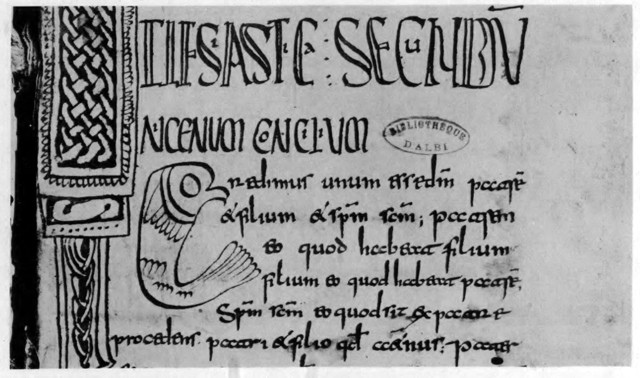 SECUNDŪ
NICENUM CONCILIUM
BIBLIOTHEQUE
D'ALBI
Credimus unum esse dm̄ patrē
& filium & sp̄m sc̄m; patrem
eo quod habeat filium
filium eo quod habeat patrē;
Sp̄m sc̄m eo quod sit ex patre
procedens patri & filio pater